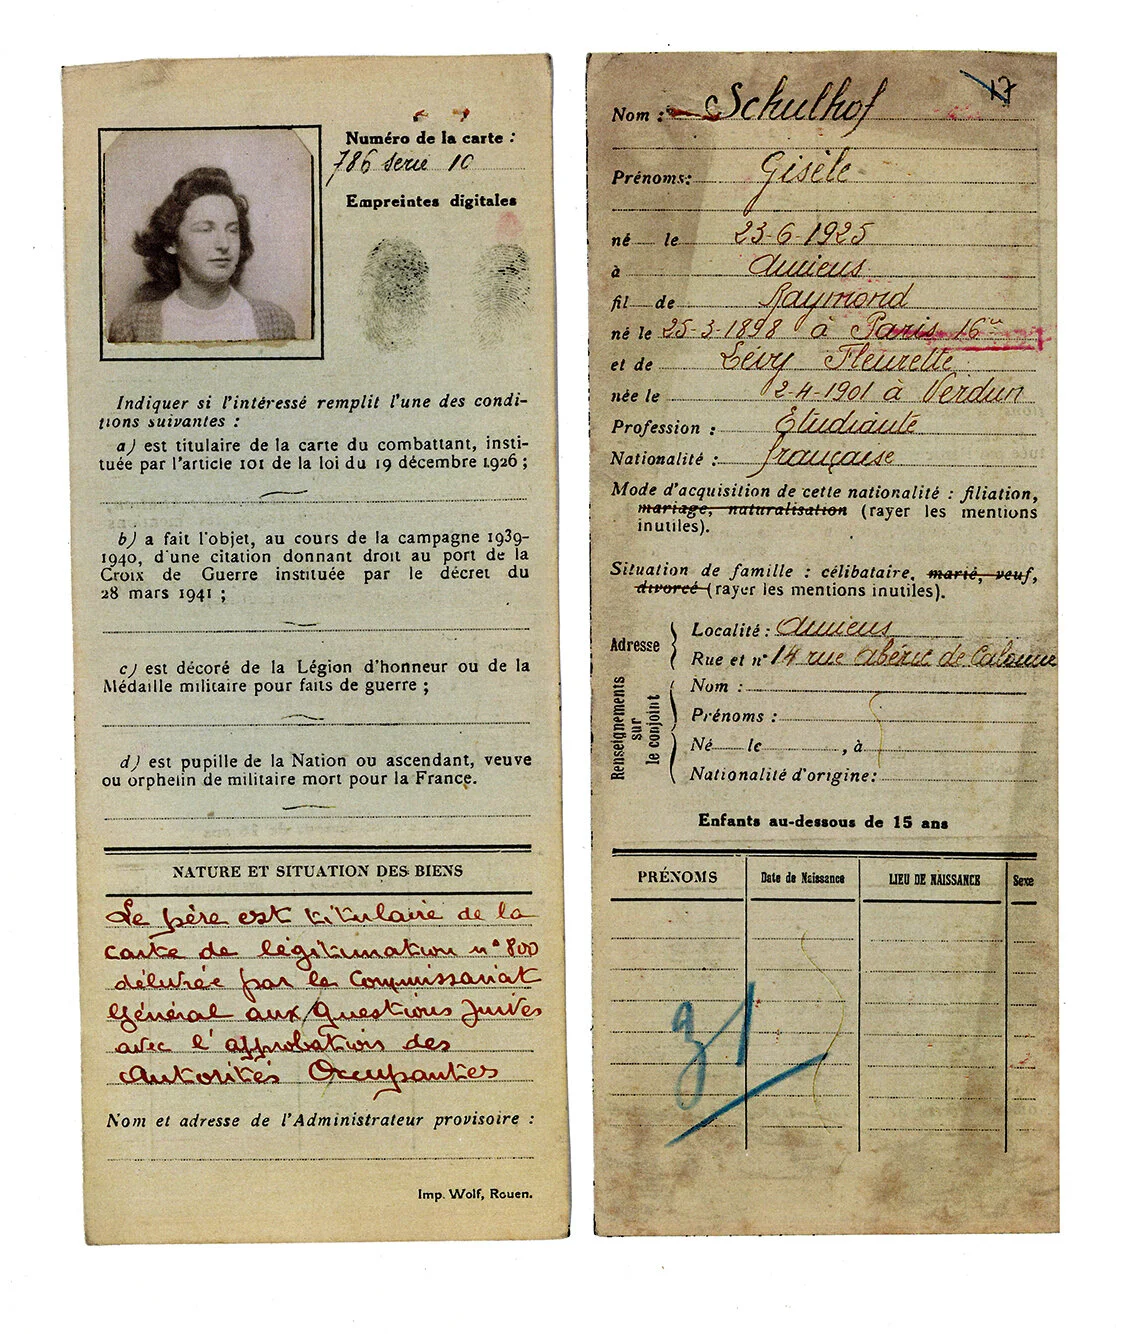 Numéro de la carte :
786 serie 10
Empreintes digitales
Indiquer si l'intéressé remplit l'une des condi-
tions suivantes :
a) est titulaire de la carte du combattant, insti-
tuée par l'article 101 de la loi du 19 décembre 1926 ;
b) a fait l'objet, au cours de la campagne 1939-
1940, d'une citation donnant droit au port de la
Croix de Guerre instituée par le décret du
28 mars 1941 ;
c) est décoré de la Légion d'honneur ou de la
Médaille militaire pour faits de guerre ;
d) est pupille de la Nation ou ascendant, veuve
ou orphelin de militaire mort pour la France.
NATURE ET SITUATION DES BIENS
Le père est titulaire de la
carte de légitimation n° 800
délivrée par le Commissariat
Général aux Questions Juives
avec l'approbation des
Autorités Occupantes
Nom et adresse de l'Administrateur provisoire :
Imp. Wolf, Rouen.
17
Nom : Schulhof
Prénoms: Gisèle
né le 23-6-1925
à Amiens
fil de Raymond
né le 25-3-1898 à Paris 16e
et de Lévy Fleurette
née le 2-4-1901 à Verdun
Profession : Etudiante
Nationalité : française
Mode d'acquisition de cette nationalité : filiation,
mariage, naturalisation (rayer les mentions
inutiles).
Situation de famille : célibataire, marié, veuf,
divorcé (rayer les mentions inutiles).
Adresse
Localité : Amiens
Rue et n° 14 rue Abéric de Calonne
Renseignements
sur
le conjoint
Nom :
Prénoms :
Né le , à
Nationalité d'origine:
Enfants au-dessous de 15 ans
PRÉNOMS Date de Naissance LIEU DE NAISSANCE Sexe
31